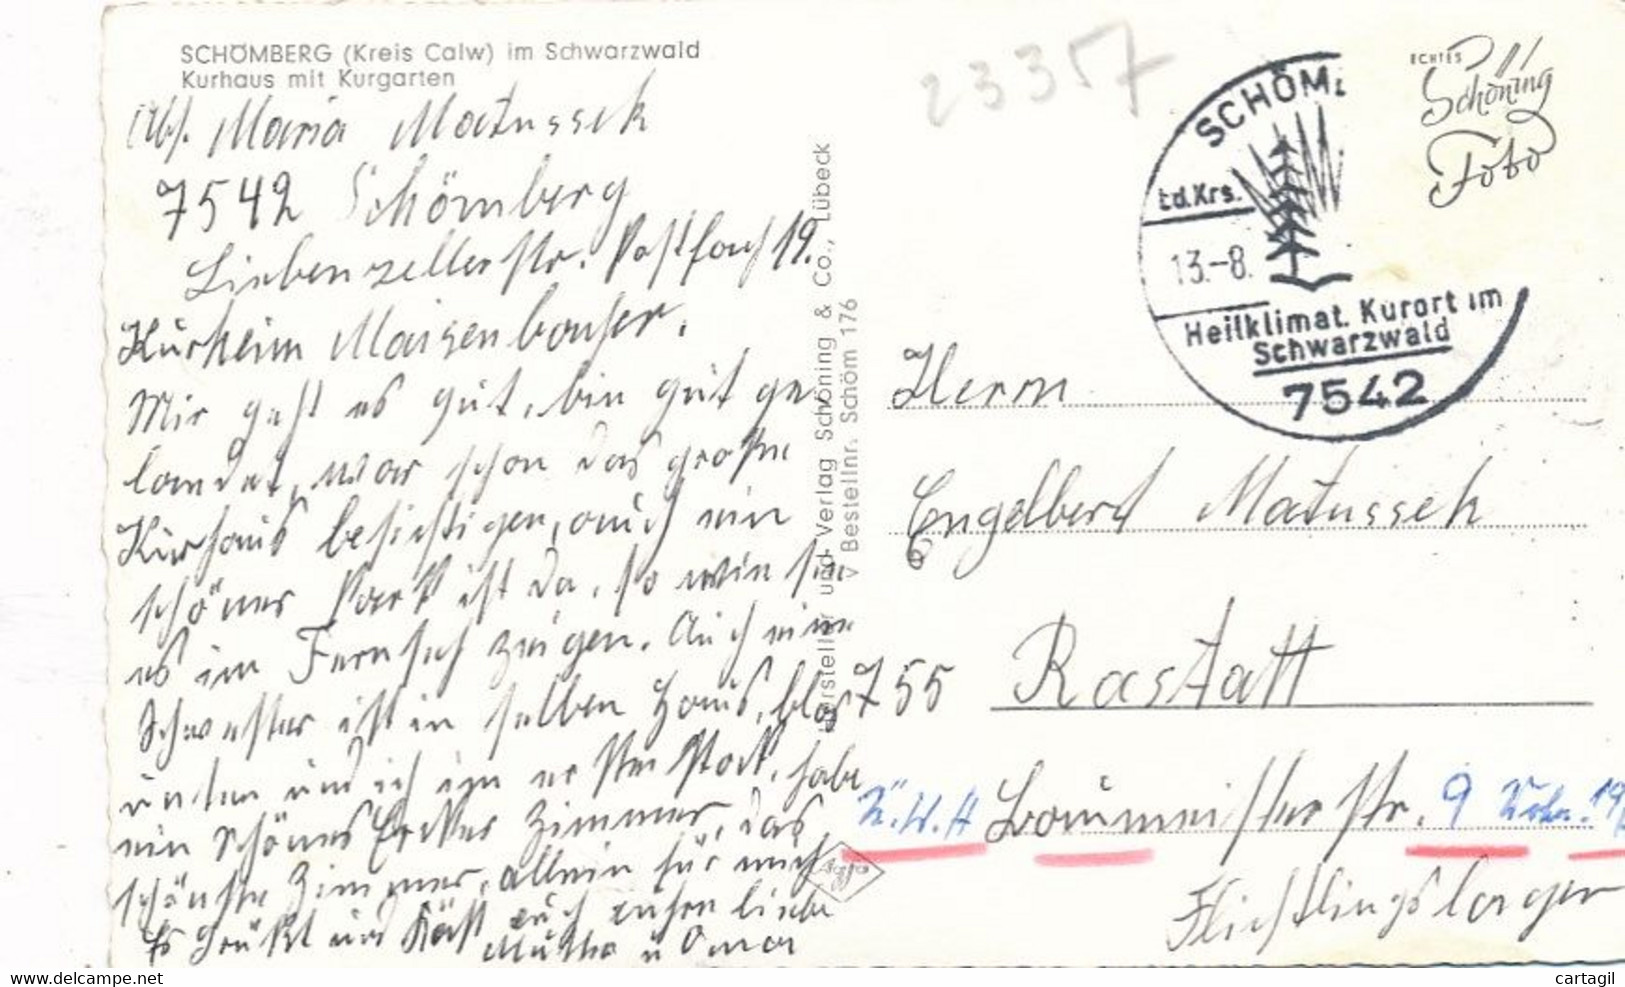 SCHÖMBERG (Kreis Calw) im Schwarzwald
Kurhaus mit Kurgarten
Abs. Maria Matussek
7542 Schömberg
Liebenzellerstr. Postfach 19.
Kurheim Maisenbacher.
Mir geht es gut, bin gut ge-
landet, war schon das große
Kurhaus besichtigen, auch ein
schöner Park ist da, so wie sie
es im Fernseh zeigen. Auch eine
Schwester ist im selben Haus, blos
unten und ich im ersten Stock, habe
ein schönes Zimmer, das
schönste Zimmer, allein für mich
Es grüßt und küßt euch eure liebe
Mutter u Oma
Hersteller und Verlag Schöning & Co., Lübeck
v Bestellnr. Schöm 176
Agfa
23357
SCHÖM
td.Krs.
13.-8.
Heilklimat. Kurort im
Schwarzwald
7542
ECHTES
Schöning
Foto
Herrn
Engelbert Matussek
755 Rastatt
Baumeisterstr. 9
Flichtlingslager
cartagil